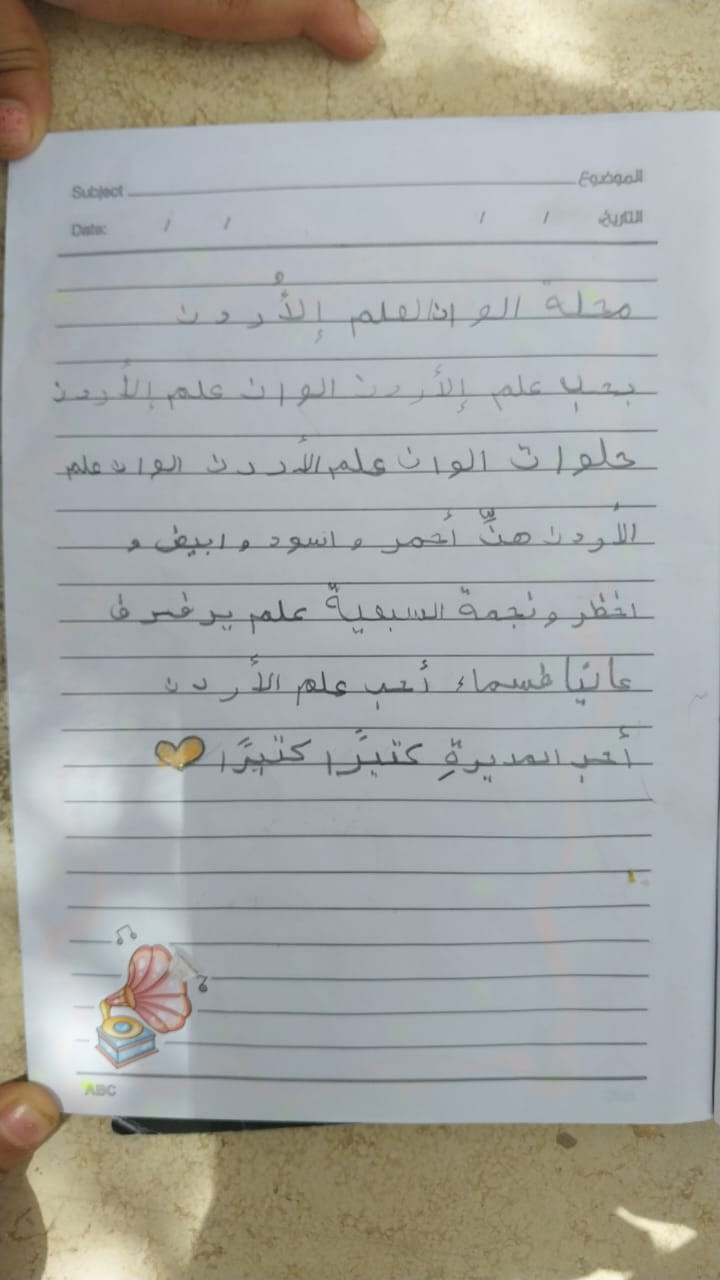 Subject الموضوع
Date: / / / / التاريخ
محلة الوان العلم إلأُردن
بحب علم إلأردن الوان علم إلأردن
حلوات الوان علم الأردن الوان علم
الأردن هنٌّ أحمر و اسود و ابيض و
اخظر و نجمة السبعية علم يرفرف
عاليًا فسماء أحب علم الأردن
أحب المديرةِ كثيرًا كثيرًا
ABC